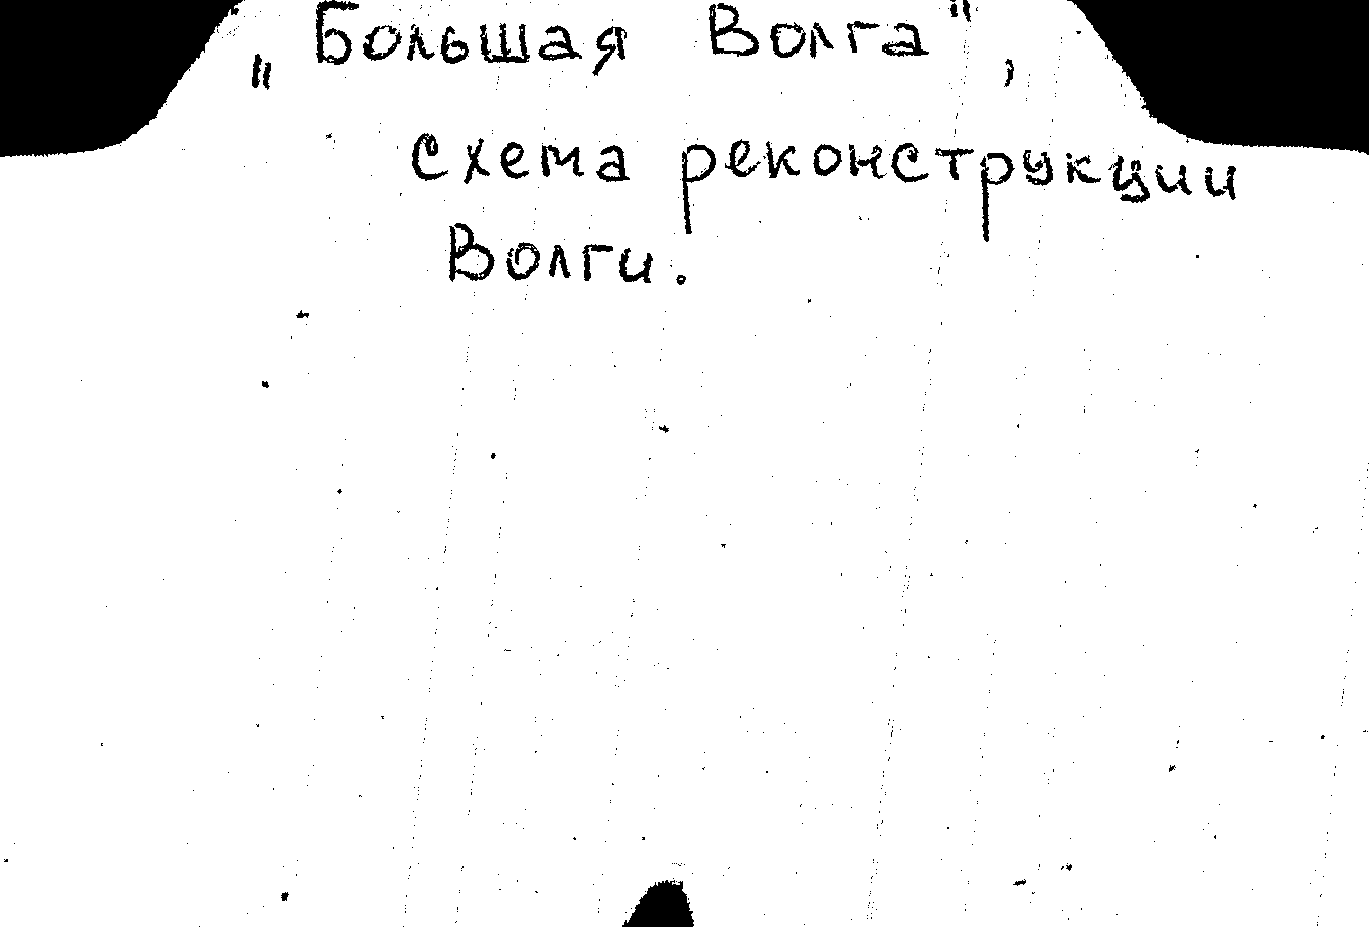 „Большая Волга",
схема реконструкции
Волги.